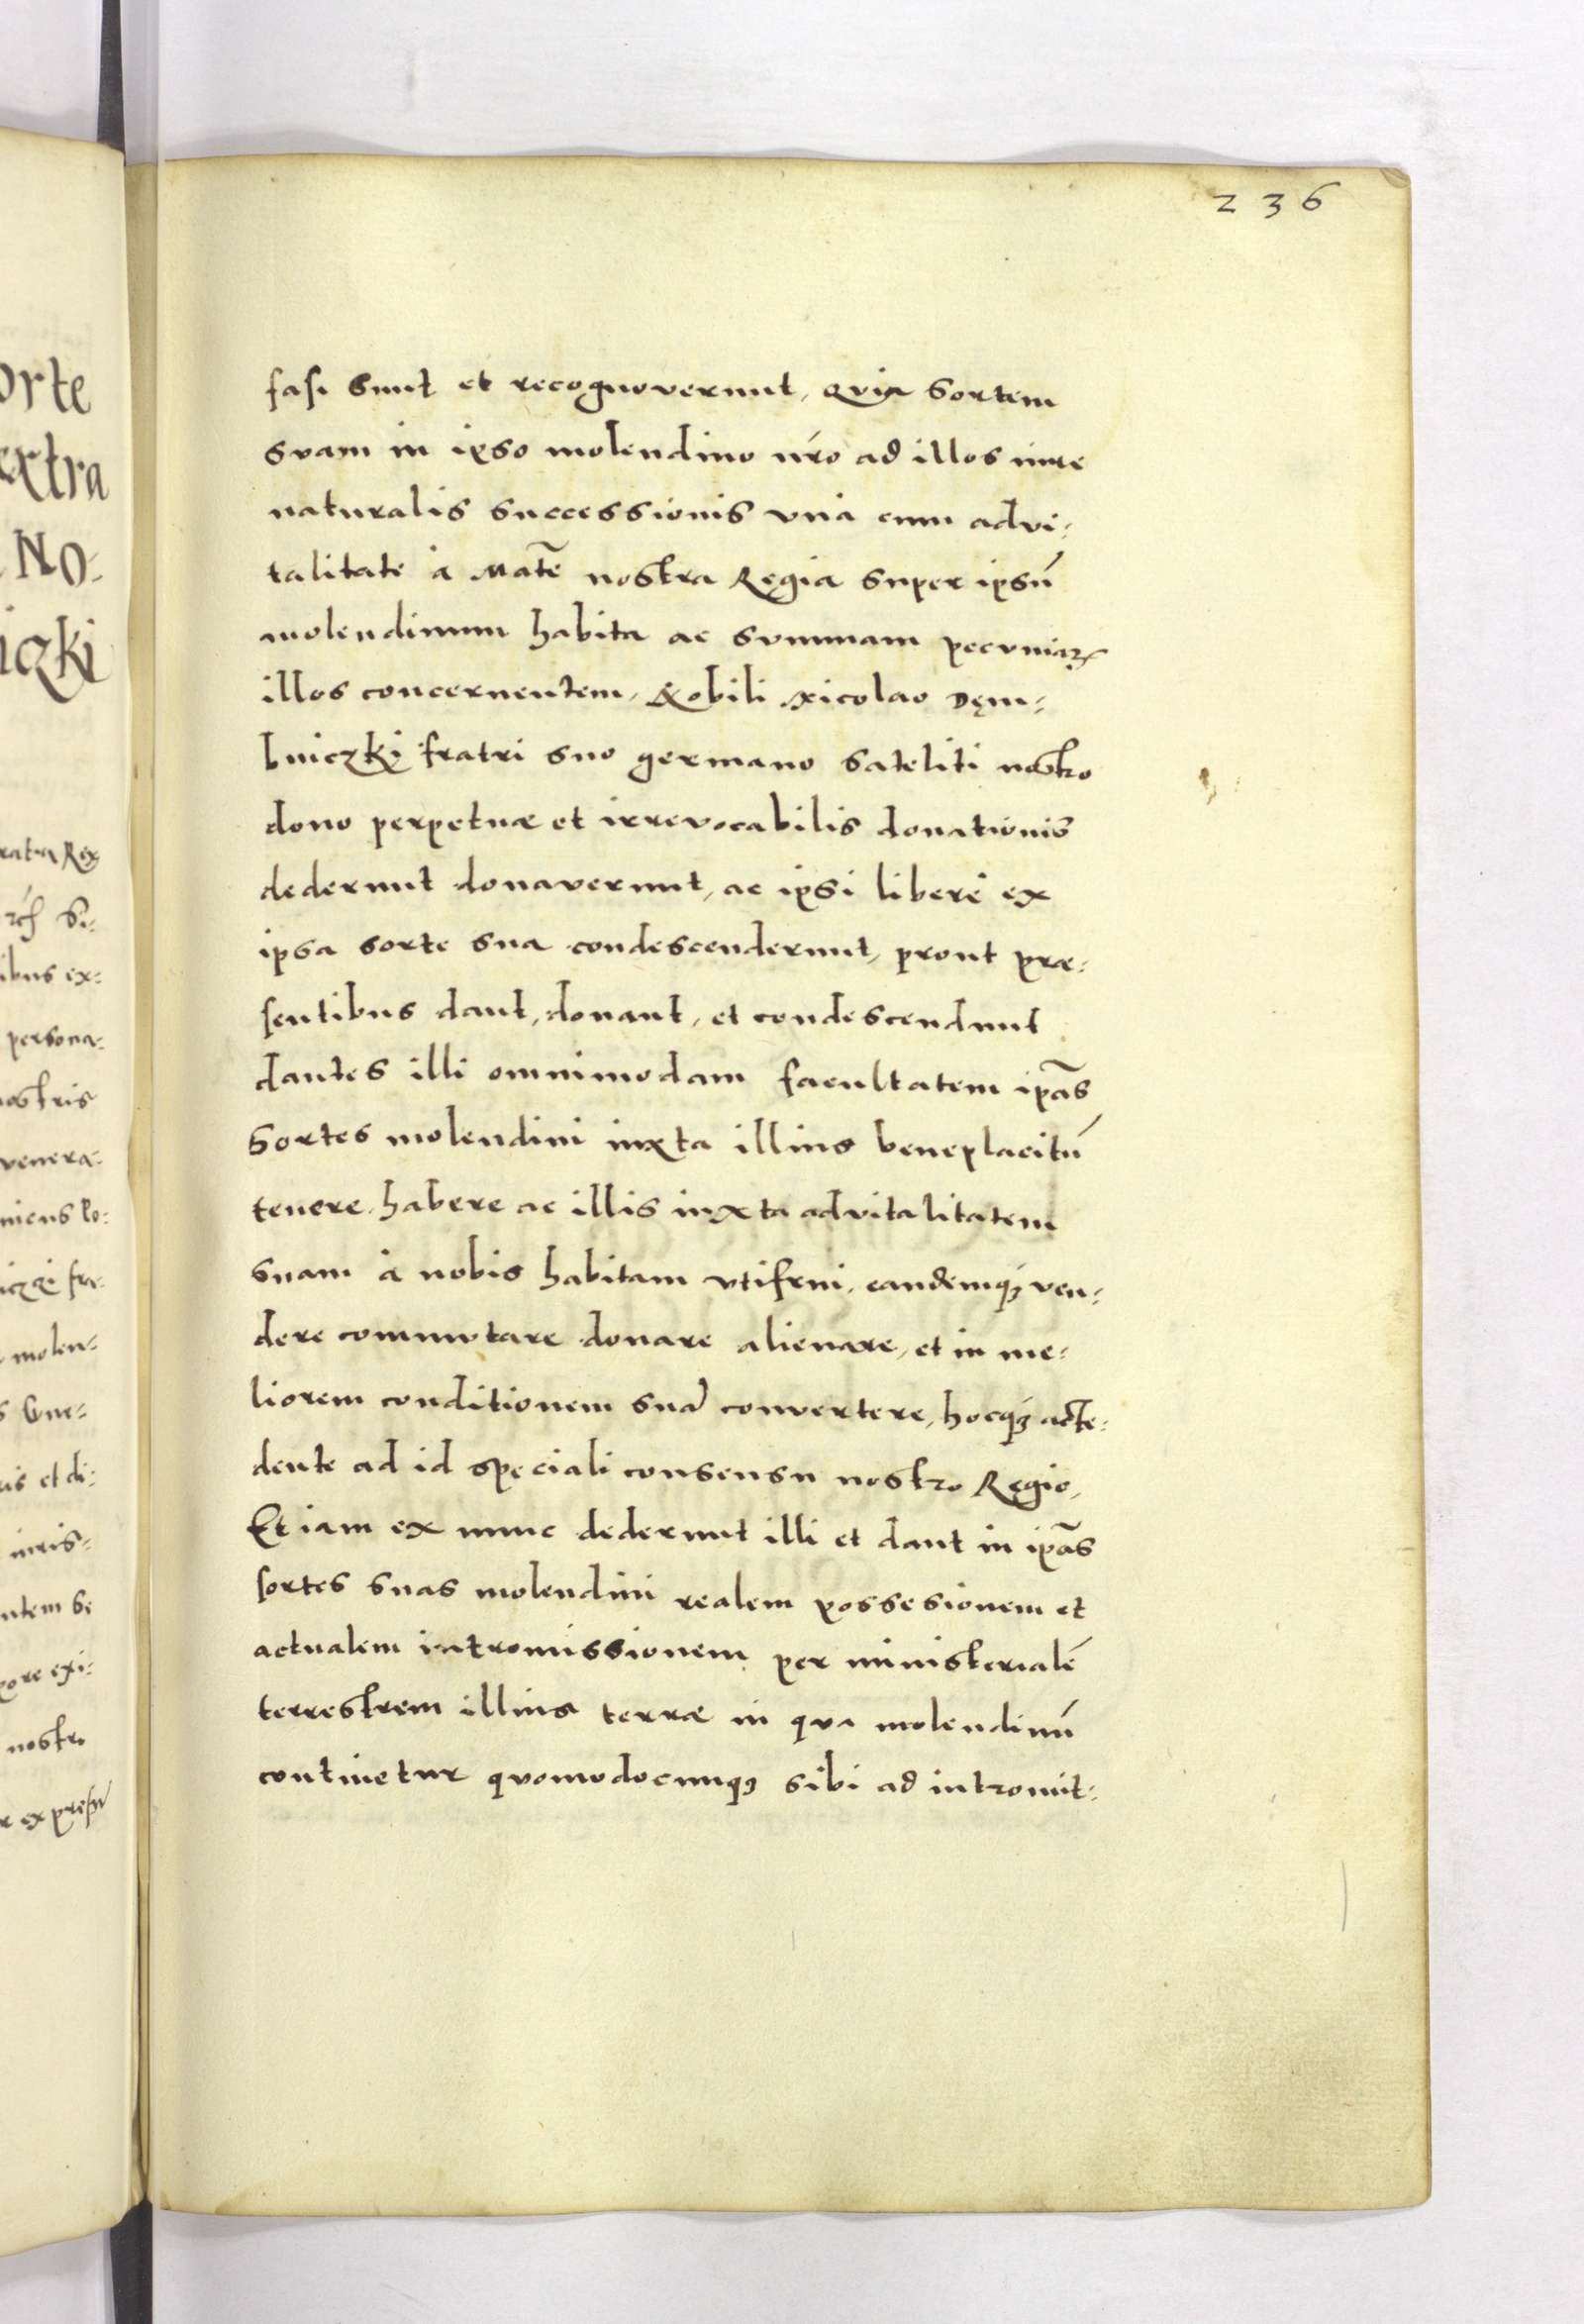 236
fasi sunt et recognoverunt, Qvia sortem
svam in ipso molendino nr̃o ad illos iure
naturalis successionis vnà cum advi-
talitate à Mat̃e nostra Regia super ipsũ
molendinum habita ac svmmam pecvniaꝝ
illos concernentem, Nobili Nicolao Dęm-
bniczki fratri suo germano sateliti nostro
dono perpetuæ et irrevocabilis donationis
dederunt donaverunt, ac ipsi liberè ex
ipsa sorte sua condescenderunt, prout præ-
sentibus dant, donant, et condescendunt
dantes illi omnimodam facultatem ip̃as
Sortes molendini iuxta illius beneplacitũ
tenere habere ac illis iuxta advitalitatem
suam à nobis habitam vtifrui, eandemq́ꝫ ven-
dere commvtare donare alienare, et in me-
liorem conditionem suã convertere, hocq́ꝫ acte-
dente ad id speciali consensu nostro Regio,
Et iam ex nunc dederunt illi et dant in ip̃as
sortes suas molendini realem possesionem et
actualem intromissionem per ministerialẽ
terrestrem illius terræ in qva molendinũ
continetur qvomodocunqꝫ sibi ad intromit-
orte
extra
No-
iczki
ibus ex-
persona-
nostris
venera-
molen-
et di-
iuris-
nostri